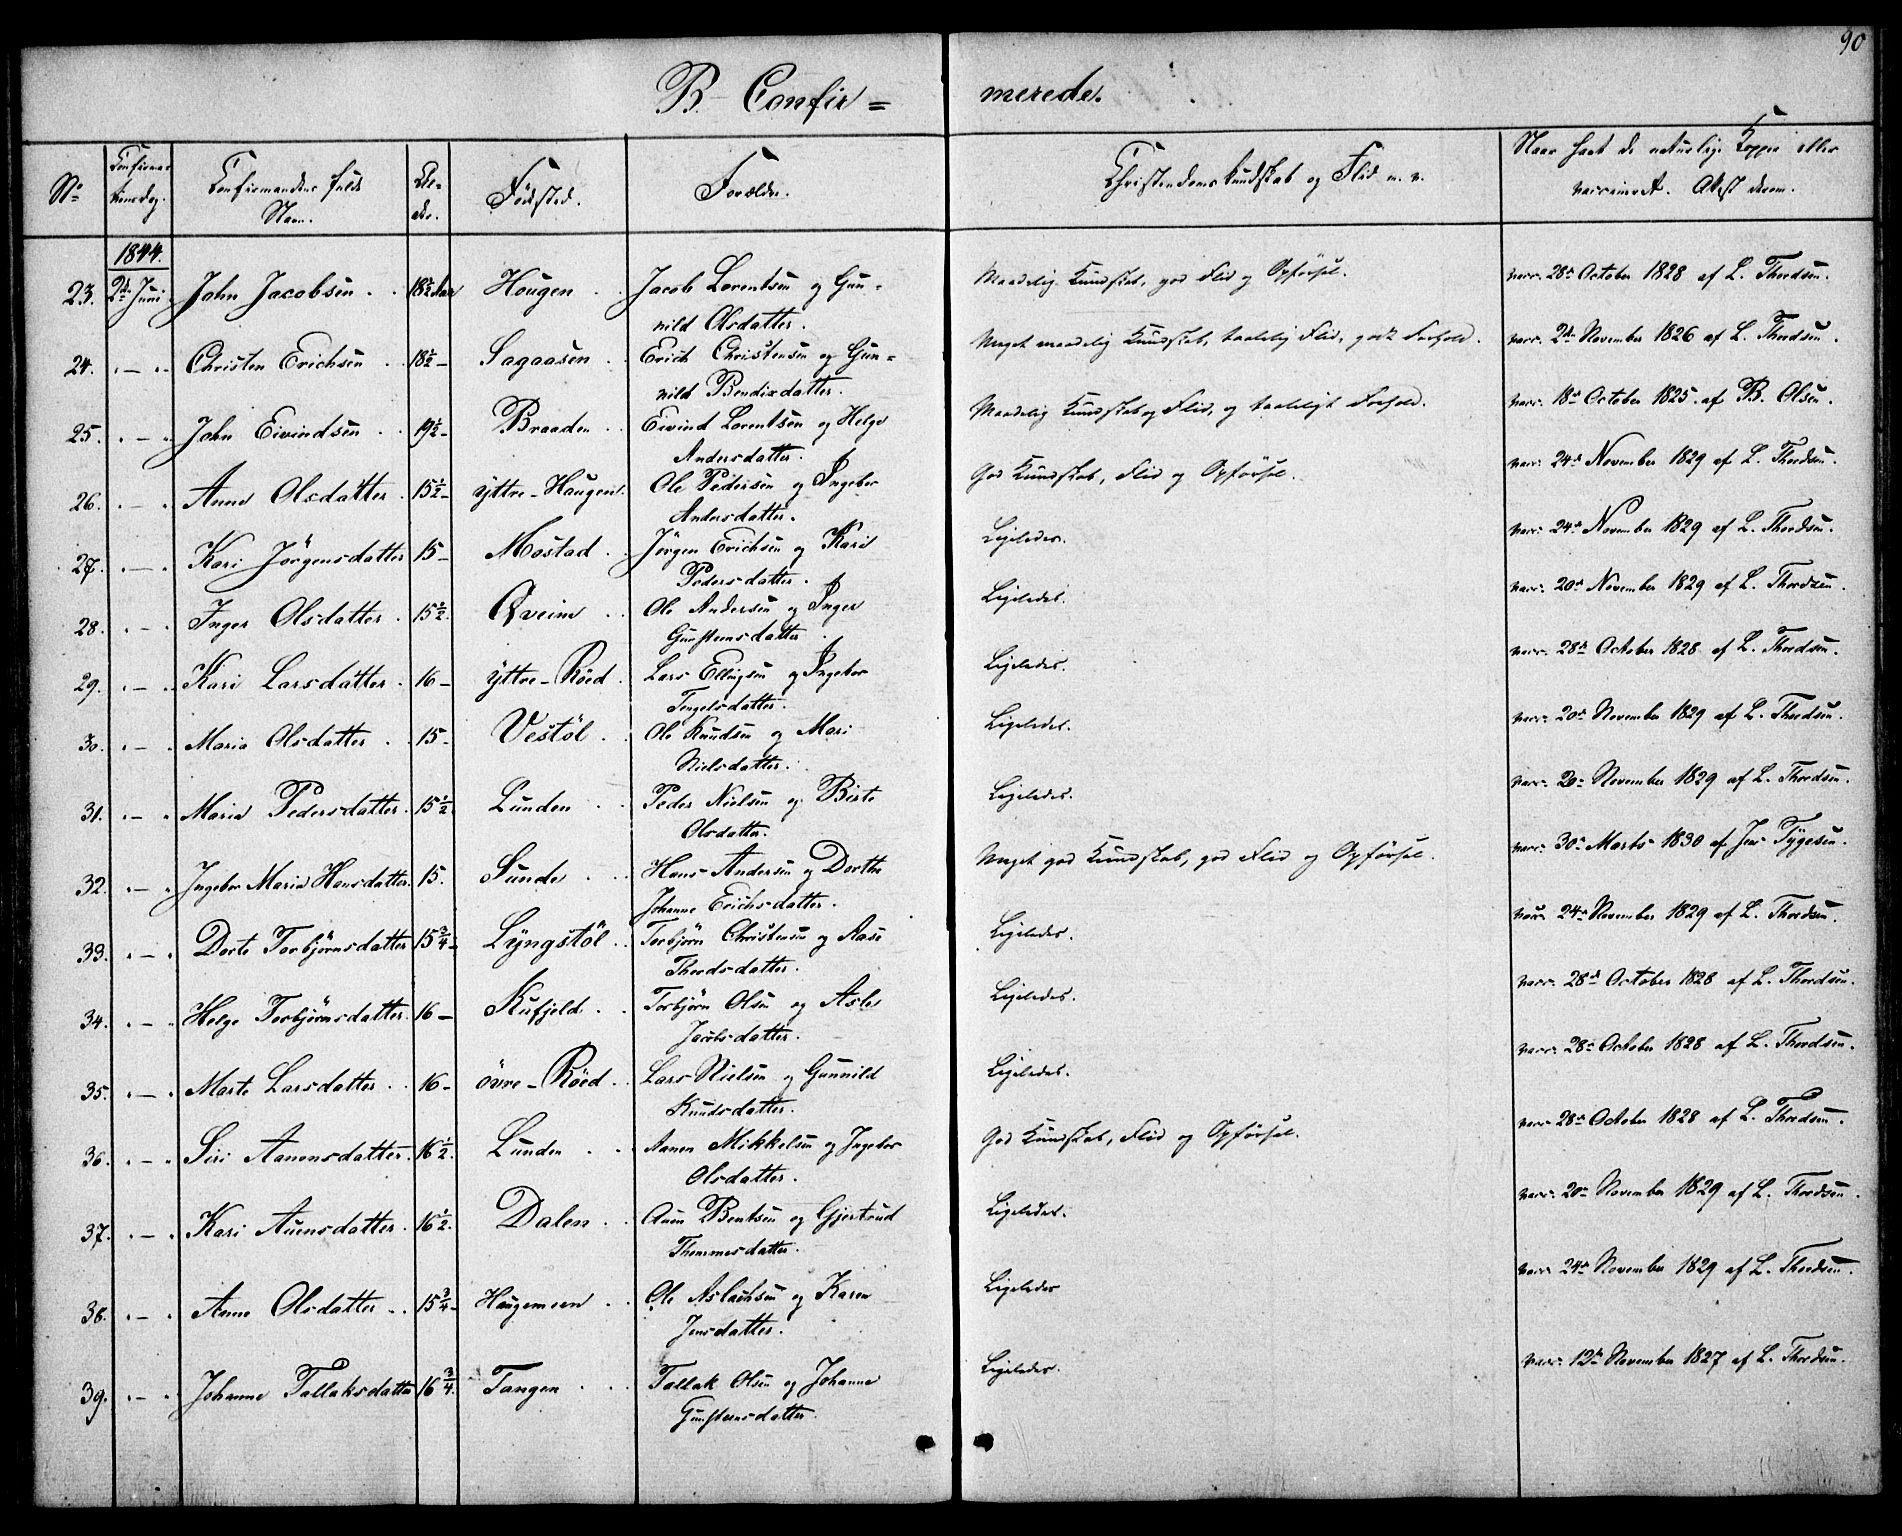 90
B. Confir = merede.
No | Confirma-tions dag. | Confirmandens fulde Navn. | Al-der. | Födsted. | Forældre. | Christendoms Kundskab og Flid m. v. | Naar havt de naturlige Kopper eller vaccineret. Attest derom.
1844.
23. 2den Juni John Jacobsen . . 18½ Aar Hougen . . Jacob Lorentsen og Gun= Maadelig Kundskab, god Flid og Opförsel. vacc. 28de October 1828 af L. Thordsen.
nild Olsdatter.
24. " — " Christen Erichsen . . 18½ — Sagaasen . Erich Christensen og Gun= Meget maadelig Kundskab, taalelig Flid, godt Forhold. vacc. 2den November 1826 af L. Thordsen.
nild Bendixdatter.
25. " — " John Eivindsen . . 19½ — Braaden . . Eivind Lorentsen og Helge Maadelig Kundskab og Flid, og taaleligt Forhold. vacc. 18de October 1825 af B. Olsen.
Andersdatter.
26. " — " Anne Olsdatter . 15½ — yttre-Haugen . Ole Pedersen og Ingebor God Kundskab, Flid og Opförsel. vacc. 24de November 1829 af L. Thordsen.
Andersdatter.
27. " — " Kari Jörgensdatter 15 — Mostad . . Jörgen Erichsen og Kari Ligeledes. vacc. 24de November 1829 af L. Thordsen.
Pedersdatter.
28. " — " Inger Olsdatter . 15½. Qveim . . Ole Andersen og Inger Ligeledes. vacc. 20de November 1829 af L. Thordsen.
Gunstensdatter .
29. " — " Kari Larsdatter . 16 — yttre-Röed . Lars Ellingsen og Ingebor Ligeledes. vacc. 28de October 1828 af L. Thordsen.
Tengelsdatter.
30. " — " Maria Olsdatter . . 15 — Vestöl . . Ole Knudsen og Mari Ligeledes. vacc. 20de November 1829 af L. Thordsen.
Nielsdatter.
31. " — " Maria Pedersdatter . 15½. Lunden . . Peder Nielsen og Birte Ligeledes. vacc. 20de November 1829 af L. Thordsen.
Olsdatter.
32. " — " Ingebor Maria Hansdatter. 15. Sunde . . Hans Andersen og Dorthe Meget god Kundskab, god Flid og Opförsel. vacc. 30te Marts 1830 af Jens Tygesen.
Johanne Erichsdatter.
33. " — " Dorte Torbjörnsdatter 15¾ — Lyngstöl . . Torbjörn Christensen og Aase Ligeledes. vacc. 24de November 1829 af L. Thordsen.
Thordsdatter.
34. " — " Helge Torbjörnsdatter. 16 — Kufjeld . . Torbjörn Olsen og Asle Ligeledes. vacc. 28de October 1828 af L. Thordsen.
Jacobsdatter.
35. " — " Marte Larsdatter . . 16 — övre-Röed . Lars Nielsen og Gunnild Ligeledes. vacc. 28de October 1828 af L. Thordsen.
Knudsdatter.
36. " — " Siri Aanonsdatter . 16½. Lunden . . Aanen Mikkelsen og Ingebor God Kundskab, Flid og Opförsel. vacc. 28de October 1828 af L. Thordsen.
Olsdatter.
37. " — " Kari Auensdatter . 16½. Dalen . . Auen Bentsen og Gjertrud Ligeledes. vacc. 20de November 1829 af L. Thordsen.
Themmesdatter.
38. " — " Anne Olsdatter . . 15¾ — Haugemoen . . Ole Aslachsen og Karen Ligeledes vacc. 24de November 1829 af L. Thordsen.
Jensdatter.
39. " — " Johanne Tallaksdatter 16¾. Tangen . . Tallak Olsen og Johanne Ligeledes. vacc. 12te November 1827 af L. Thordsen.
Gunstensdatter.